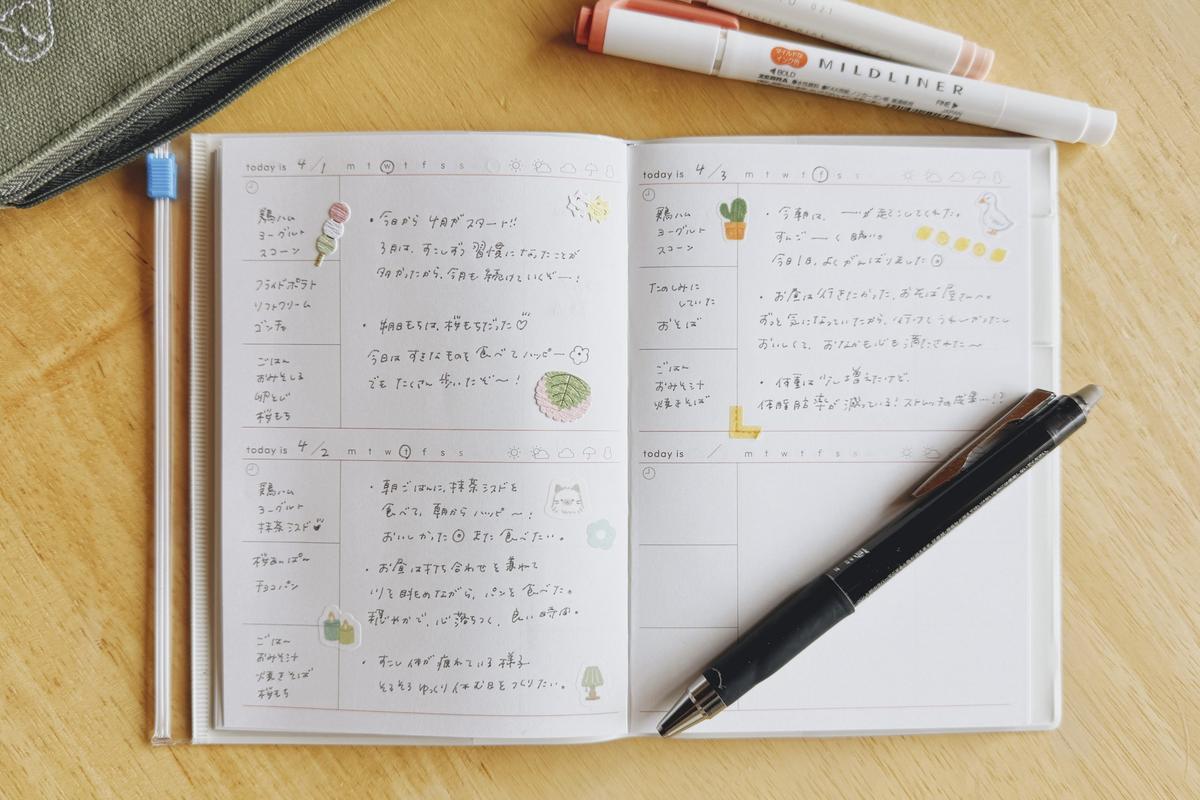 マイルドな
インク色
MILDLINER
BOLD
ZEBRA
FINE
today is 4/1 m t w t f s s
鶏ハム
ヨーグルト
スコーン
フライドポテト
ソフトクリーム
ゴンチャ
ごはん
おみそしる
卵とじ
桜もち
・今日から4月がスタート!!
3月は、すこしずつ習慣になったことが
多かったから、今月も続けていくぞー!
・朔日もちは、桜もちだった♡
今日はすきなものを食べてハッピー
でもたくさん歩いたぞ〜!
today is 4/2 m t w t f s s
鶏ハム
ヨーグルト
抹茶ミスド
桜あんぱん
チョコパン
ごはん
おみそ汁
焼きそば
桜もち
・朝ごはんに、抹茶ミスドを
食べて、朝からハッピー〜!
おいしかった また食べたい。
・お昼は打ち合わせを兼ねて
川を眺めながら、パンを食べた。
穏やかで、心落ちつく、良い時間。
・すこし体が疲れている様子
そろそろゆっくり休む日をつくりたい。
today is 4/3 m t w t f s s
鶏ハム
ヨーグルト
スコーン
たのしみに
していた
おそば
ごはん
おみそ汁
焼きそば
・今朝は、
すんごーく
今日1日、よくがんばりました
・お昼は行きたかった、おそば屋さんへ。
ずっと気になっていたから、行けてうれしかったし
おいしくて、おなかも心も満たされた〜
・体重は少し増えたけど、
体脂肪率が減っている!ストレッチの成果…!?
today is / m t w t f s s